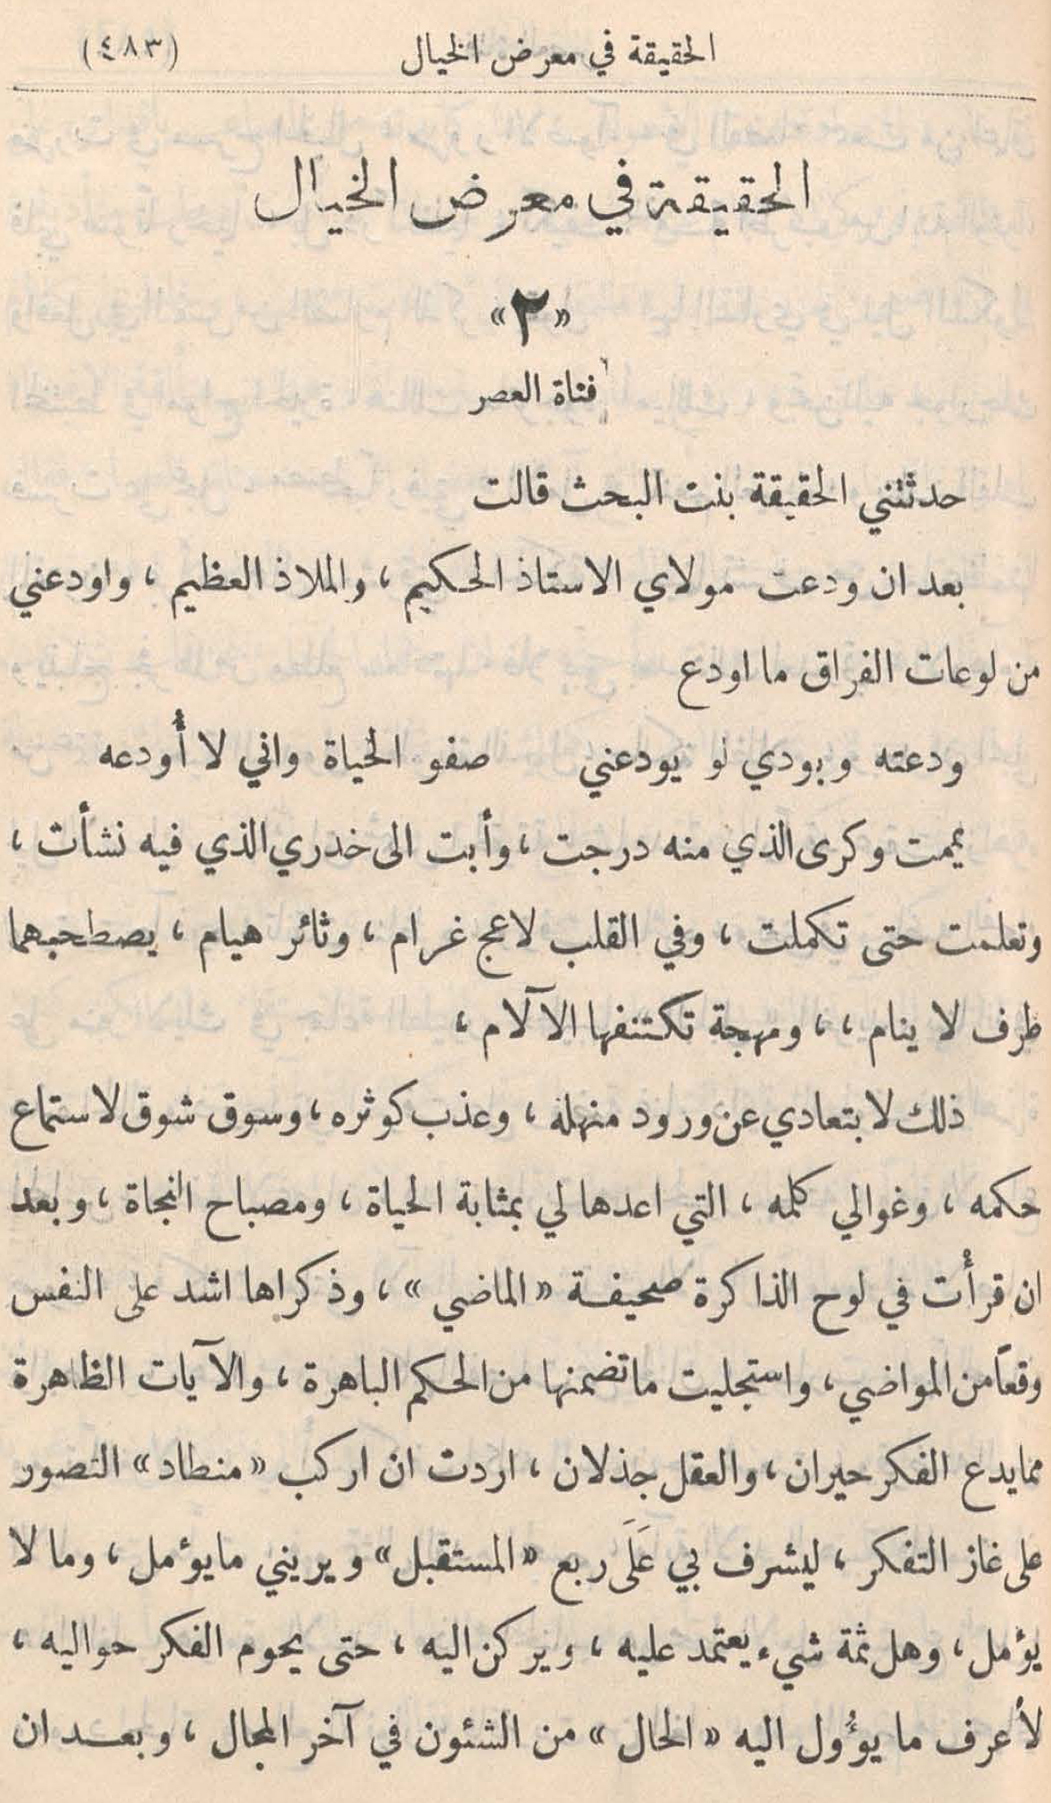 الحقيقة في معرض الخيال (٤٨٣)
الحقيقة في معرض الخيال
«٢»
فتاة العصر
حدثتني الحقيقة بنت البحث قالت
بعد ان ودعت مولاي الاستاذ الحكيم ، والملاذ العظيم ، واودعني
من لوعات الفراق ما اودع
ودعته وبودي لو يودعني صفو الحياة واني لا أودعه
يممت وكرى الذي منه درجت ، وأبت الى خدري الذي فيه نشأت ،
وتعلمت حتى تكملت ، وفي القلب لاعج غرام ، وثائر هيام ، يصطحبهما
طرف لا ينام ، ، ومهجة تكتنفها الآلام ،
ذلك لابتعادي عن ورود منهله ، وعذب كوثره ، وسوق شوق لاستماع
حكمه ، وغوالي كلمه ، التي اعدها لي بمثابة الحياة ، ومصباح النجاة ، وبعد
ان قرأت في لوح الذاكرة صحيفة «الماضي» ، وذكراها اشد على النفس
وقعاً من المواضي ، واستجليت ما تضمنها من الحكم الباهرة ، والآيات الظاهرة
مما يدع الفكر حيران ، والعقل جذلان ، اردت ان اركب «منطاد» التصور
على غاز التفكر ، ليشرف بي عَلَى ربع «المستقبل» ويريني ما يؤمل ، وما لا
يؤمل ، وهل ثمة شيء يعتمد عليه ، ويركن اليه ، حتى يحوم الفكر حواليه ،
لأعرف ما يؤُول اليه «الحال» من الشئون في آخر المجال ، وبعد ان